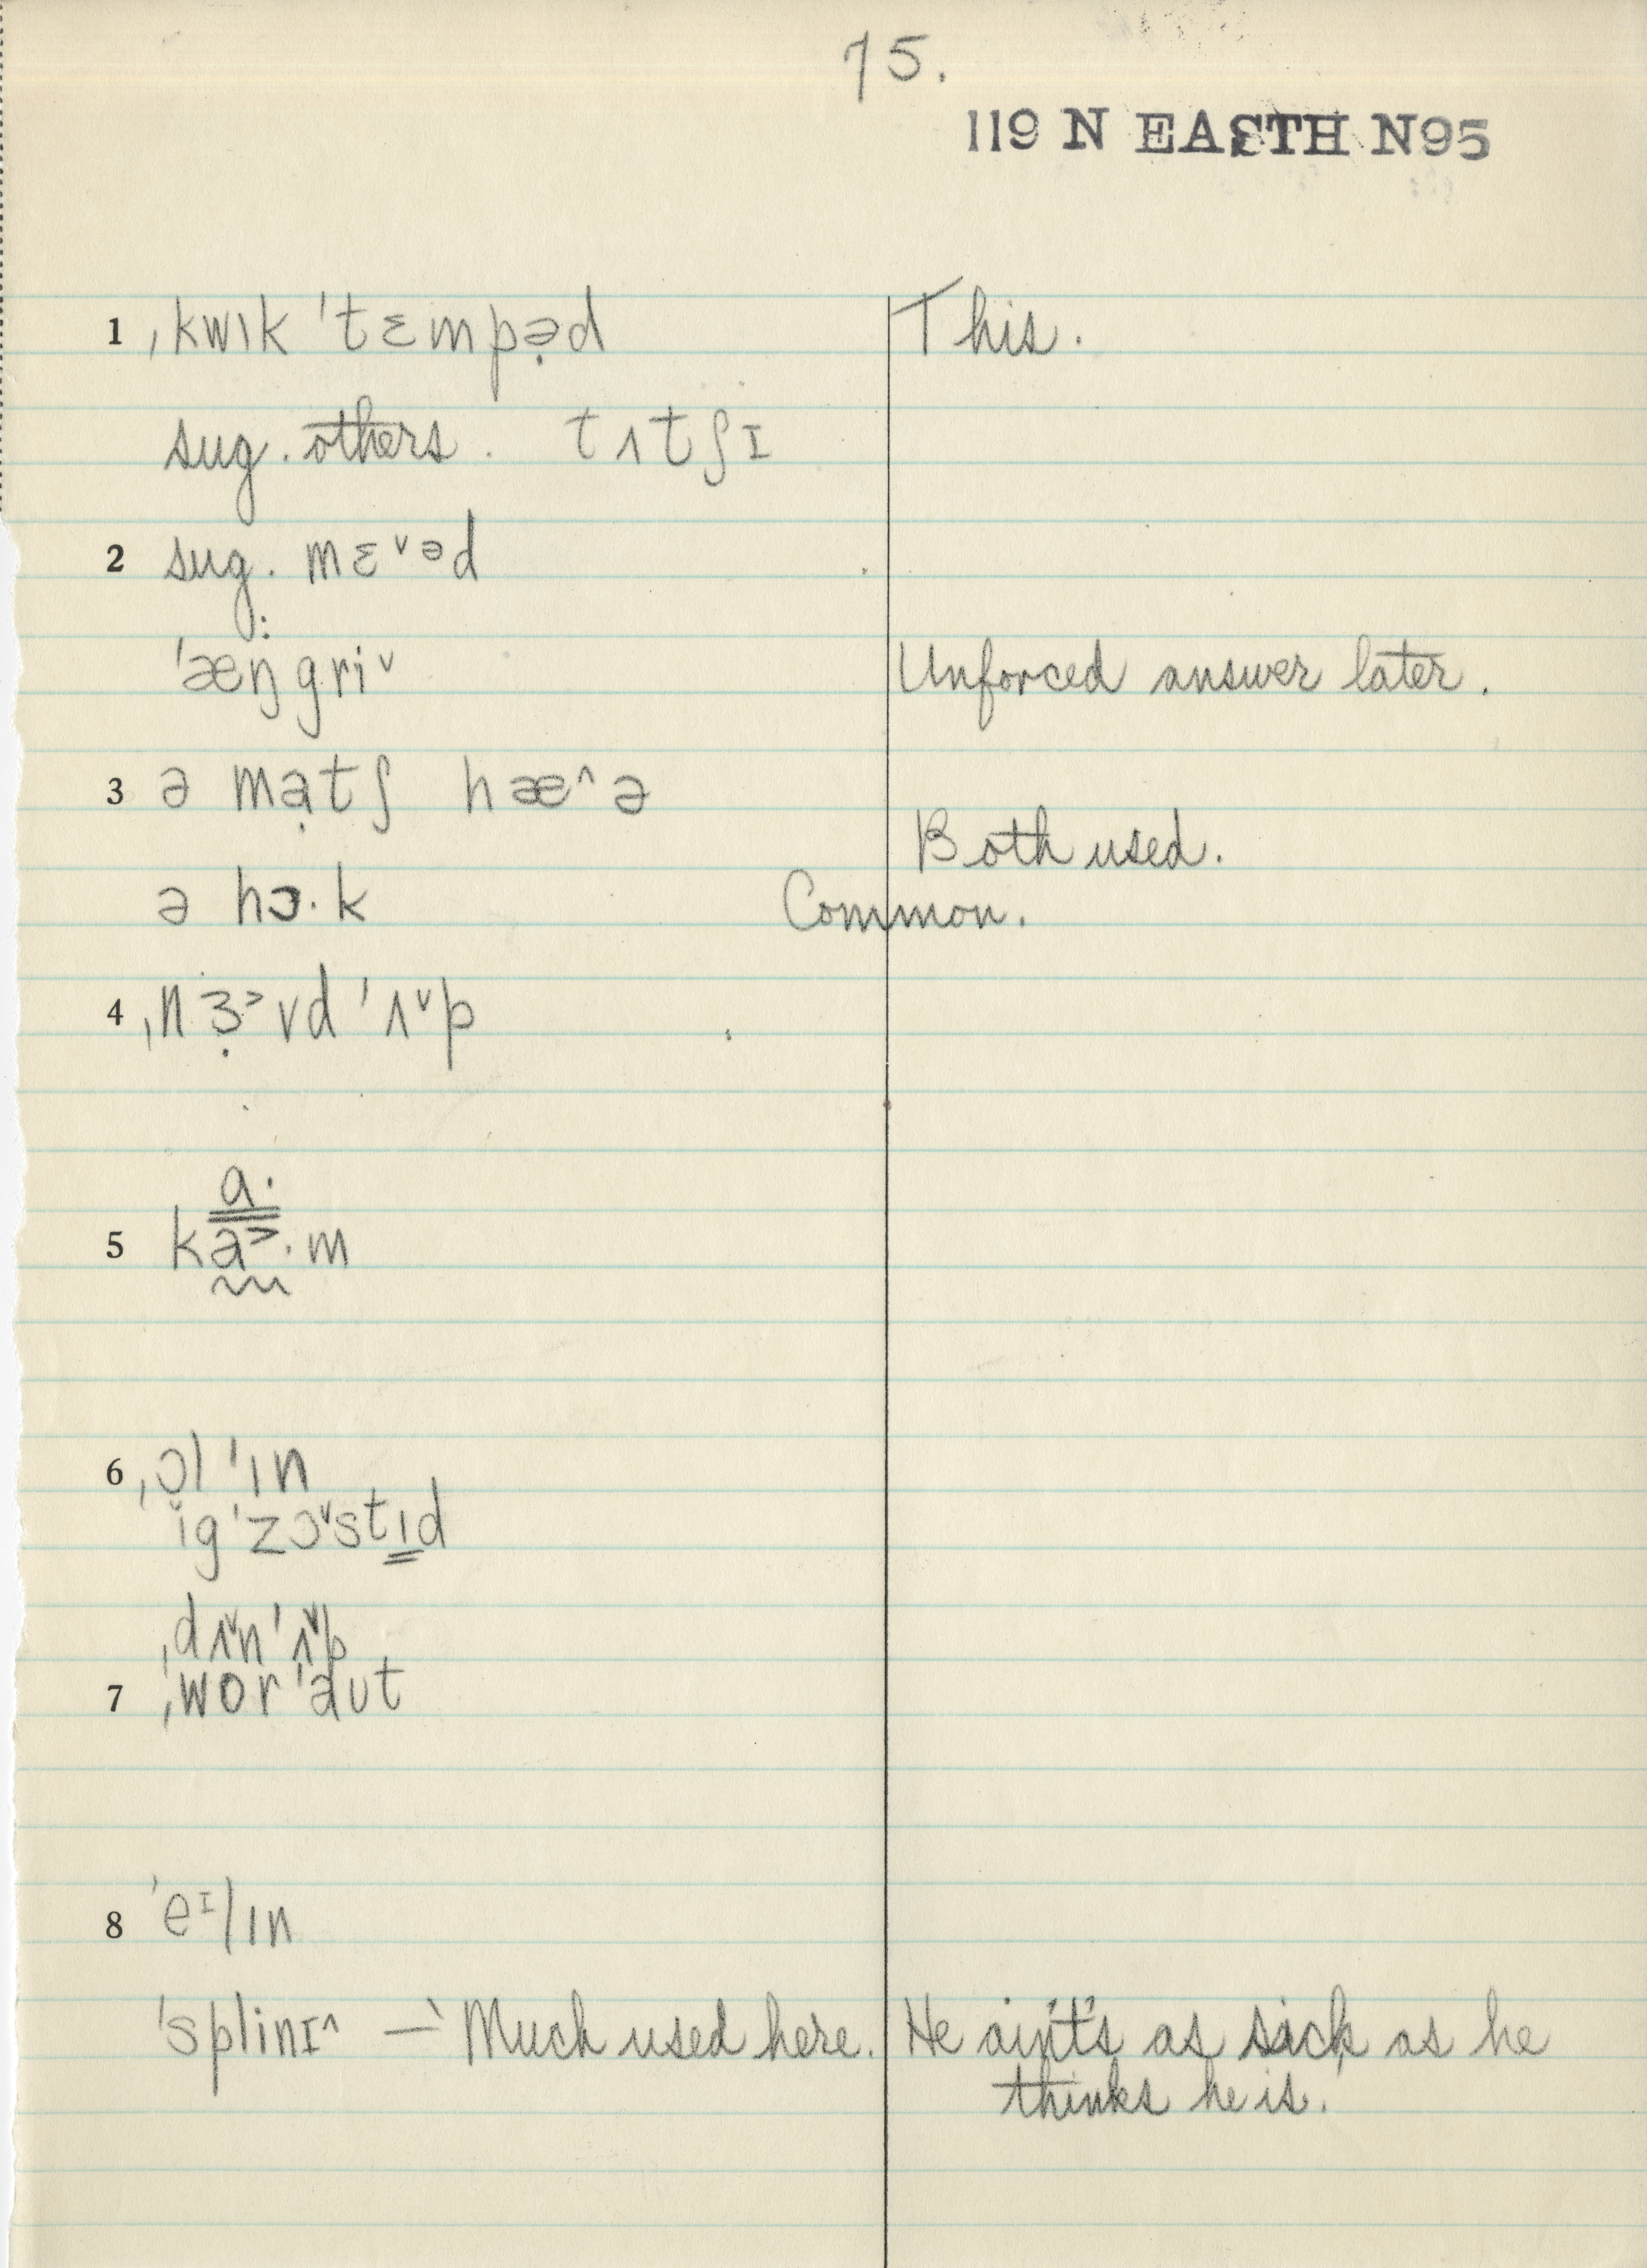 75.
119 N EASTH N95
1 ˌkwɪk ˈtɛmpə̣d This.
sug. others. tʌtʃɪ
2 sug. mɛ˅ᵊd
ˈæŋ̈gri˅ Unforced answer later.
3 ə mạtʃ hæ^ə
Both used.
ə hɔ·k Common.
4 ˌnɜ̣˃vd ˈʌ˅p
a·
5 ka˃·m
6 ˌɔl ˈɪn
ĭgˈzɔ˅stɪd
ˌdʌ˅nˈʌ˅p
7 ˌworˈaut
8 ˈeᶦlɪn
ˈsplinɪ^ — Much used here. He ain't's as sick as he
thinks he is.